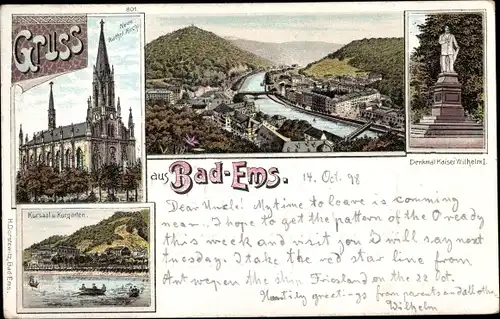 801
Gruss
Neue Kathol. Kirche
Denkmal Kaiser Wilhelm I.
aus Bad-Ems.
14. Oct. 98
Kursaal u. Kurgarten.
H. Dursthewitz, Bad-Ems.
Dear Uncle! My time to leave is comming
near. I hope to get the pattern of the O ready
this week and visit you I will say next
tuesday. I take the red star line from
Antwepen the ship Friesland on the 22 Oct.
Heartily greetings from parents and all other
Wilhelm